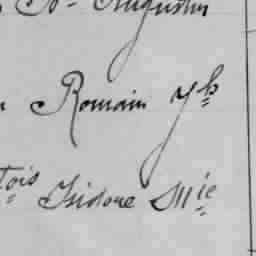 St Augustin
Romain Jh
tois Isidore Mie